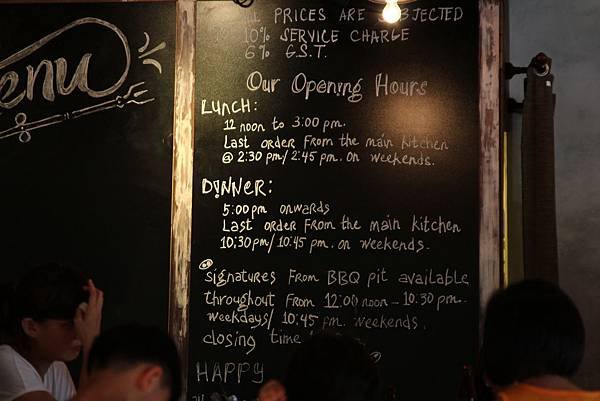 enu
PRICES ARE
10% SERVICE CHARGE
6% G.S.T.
Our Opening Hours
LUNCH:
12 noon to 3:00 pm.
Last order From the main kitchen
@ 2:30 pm/ 2:45 pm. on weekends.
DINNER:
5:00 pm onwards
Last order From the main kitchen
10:30 pm/ 10:45 pm. on weekends.
signatures From BBQ pit available
throughout From 12:00 noon - 10.30 pm.
weekdays/ 10:45 pm. weekends.
closing time
HAPPY